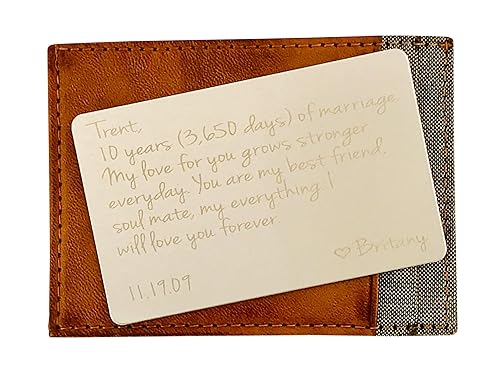 Trent,
10 years (3,650 days) of marriage.
My love for you grows stronger
everyday. You are my best friend,
soul mate, my everything. I
will love you forever.
♡ Britany
11.19.09